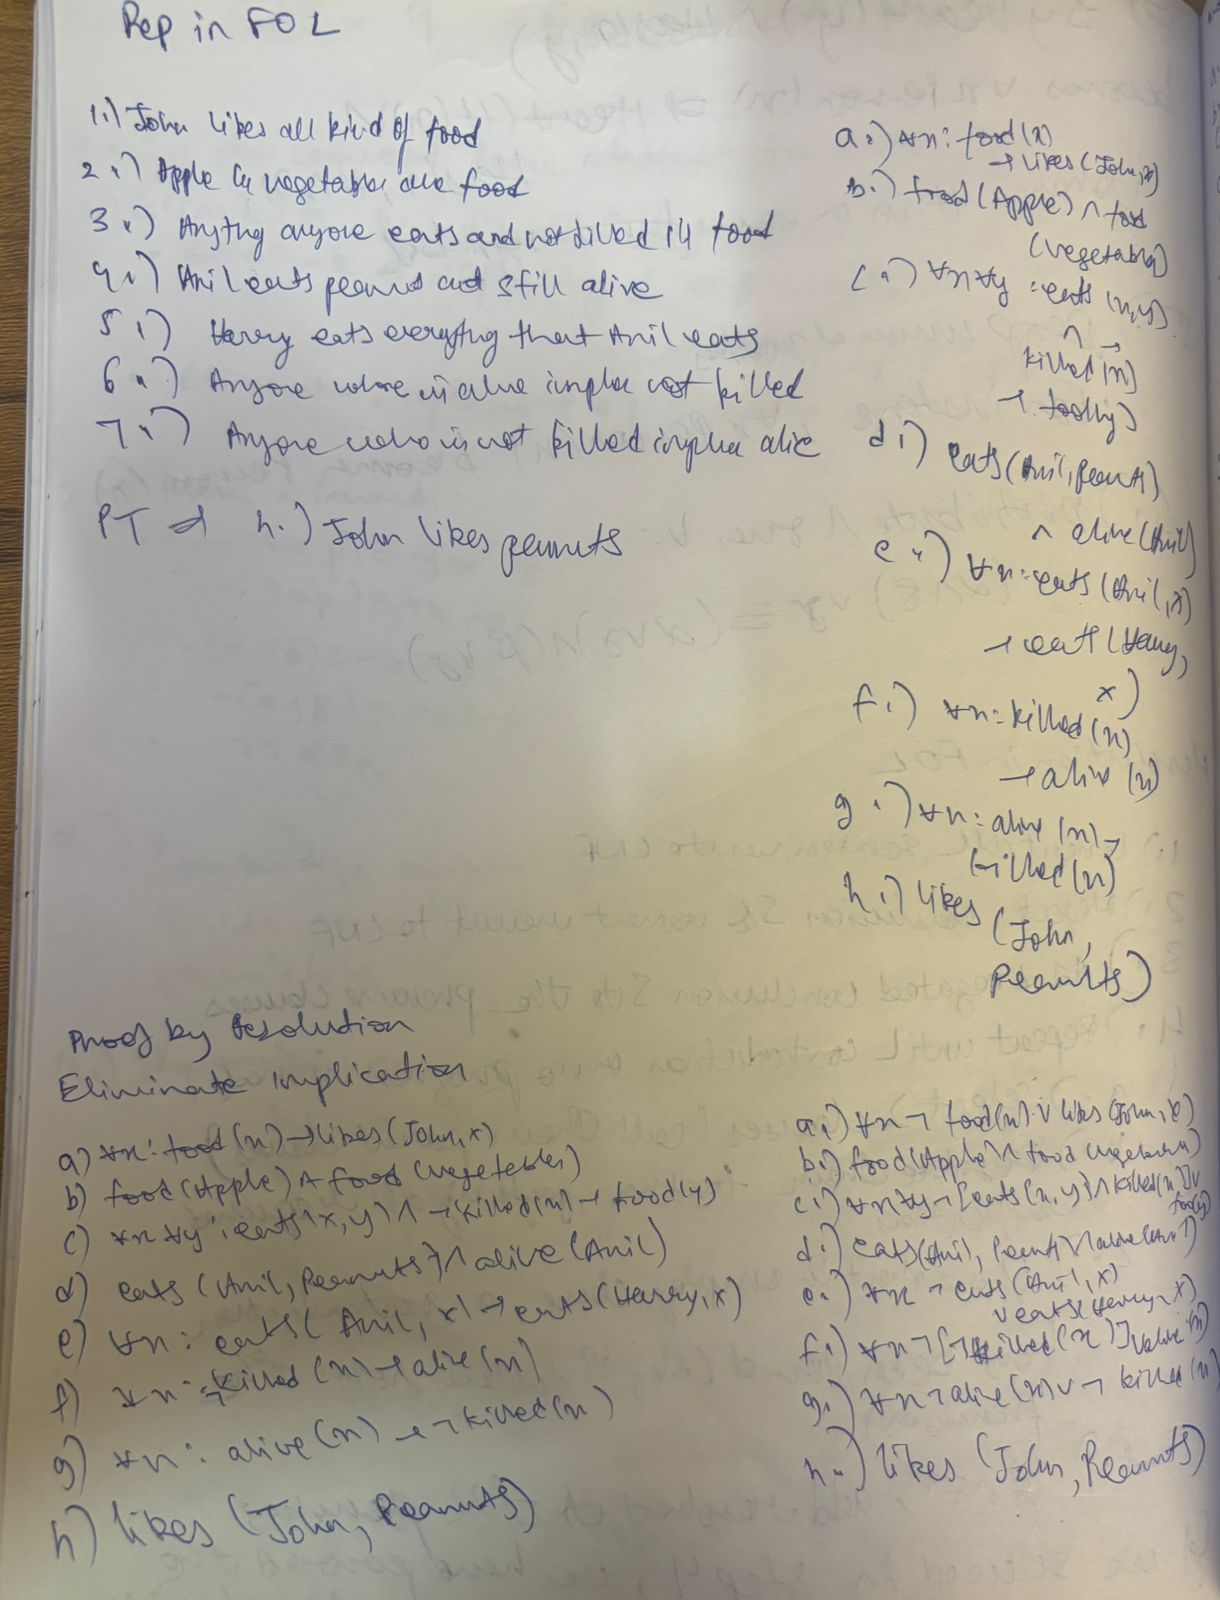 Rep in FOL
1.) John likes all kind of food
2.) Apple & vegetable are food
3.) Anything anyone eats and not killed is food
4.) Anil eats peanuts and still alive
5.) Harry eats everything that Anil eats
6.) Anyone who is alive implies not killed
7.) Anyone who is not killed implies alive
PT → h.) John likes peanuts
a.) ∀x: food(x)
→ likes(John,x)
b.) food(Apple) ∧ food
(vegetable)
c.) ∀x∀y : eats (x,y)
∧ ¬
killed(x)
→ food(y)
d.) eats(Anil, Peanuts)
∧ alive(Anil)
e.) ∀x: eats(Anil,x)
→ eats(Harry,
x)
f.) ∀x: killed(x)
→ alive(x)
g.) ∀x: alive(x) →
killed(x)
h.) likes
(John,
Peanuts)
Proof by Resolution
Eliminate Implication
a) ∀x: food(x) → likes(John,x)
b) food(Apple) ∧ food(vegetables)
c) ∀x ∀y : eats(x,y) ∧ ¬killed(x) → food(y)
d) eats (Anil, Peanuts) ∧ alive(Anil)
e) ∀x : eats( Anil, x) → eats(Harry,x)
f) ∀x : ¬killed(x) → alive(x)
g) ∀x : alive(x) → ¬killed(x)
h) likes (John, Peanuts)
a.) ∀x ¬ food(x) ∨ likes(John,x)
b.) food(Apple) ∧ food(vegetables)
c.) ∀x∀y ¬[eats(x,y) ∧ killed(x)] ∨
food(y)
d.) eats(Anil, Peanuts) ∧ alive(Anil)
e.) ∀x ¬ eats (Anil, x)
∨ eats(Harry, x)
f.) ∀x ¬[¬killed(x)] ∨ alive(x)
g.) ∀x ¬alive(x) ∨ ¬ killed(x)
h.) likes (John, Peanuts)